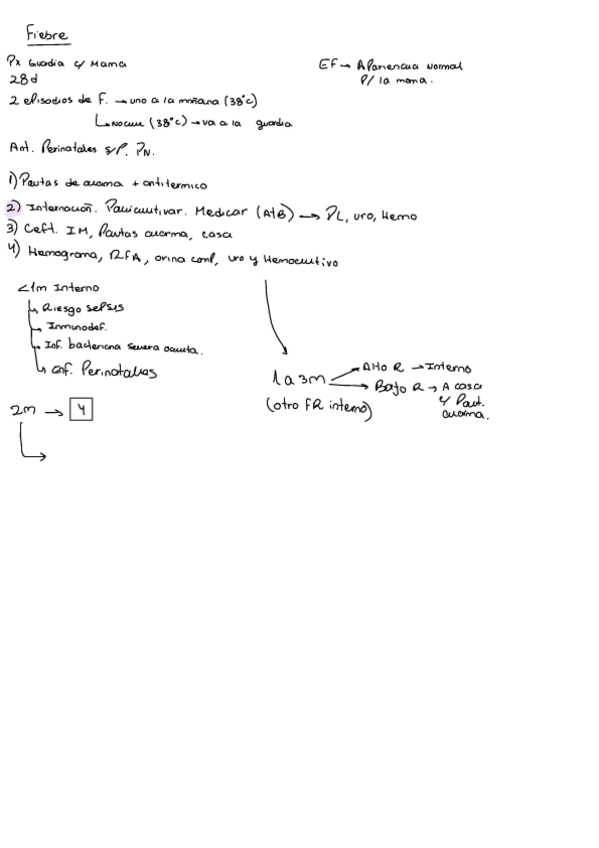 Fiebre
Px Guardia c/ Mama
28d
2 episodios de F. → uno a la mañana (38°C)
↳ Noche (38°C) → va a la guardia
Ant. Perinatales s/P. PN.
EF → Apariencia Normal
P/ la mama.
1) Pautas de alarma + antitermico
2) Internación. Policultivar. Medicar (AtB) → PL, uro, Hemo
3) Ceft. IM, Pautas alarma, casa
4) Hemograma, RFA, orina comp, uro y Hemocultivo
<1m Interno
↳ Riesgo sepsis
→ Inmunodef.
→ Inf. bacteriana severa oculta.
↳ Inf. Perinatales
1 a 3m → Alto R → Interno
→ Bajo R → A casa
y Paut.
alarma.
(otro FR interno)
2m → 4